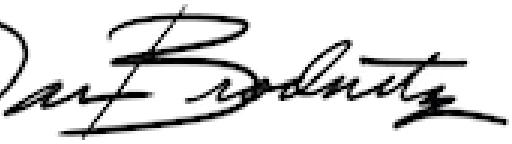 Dan Brodnitz